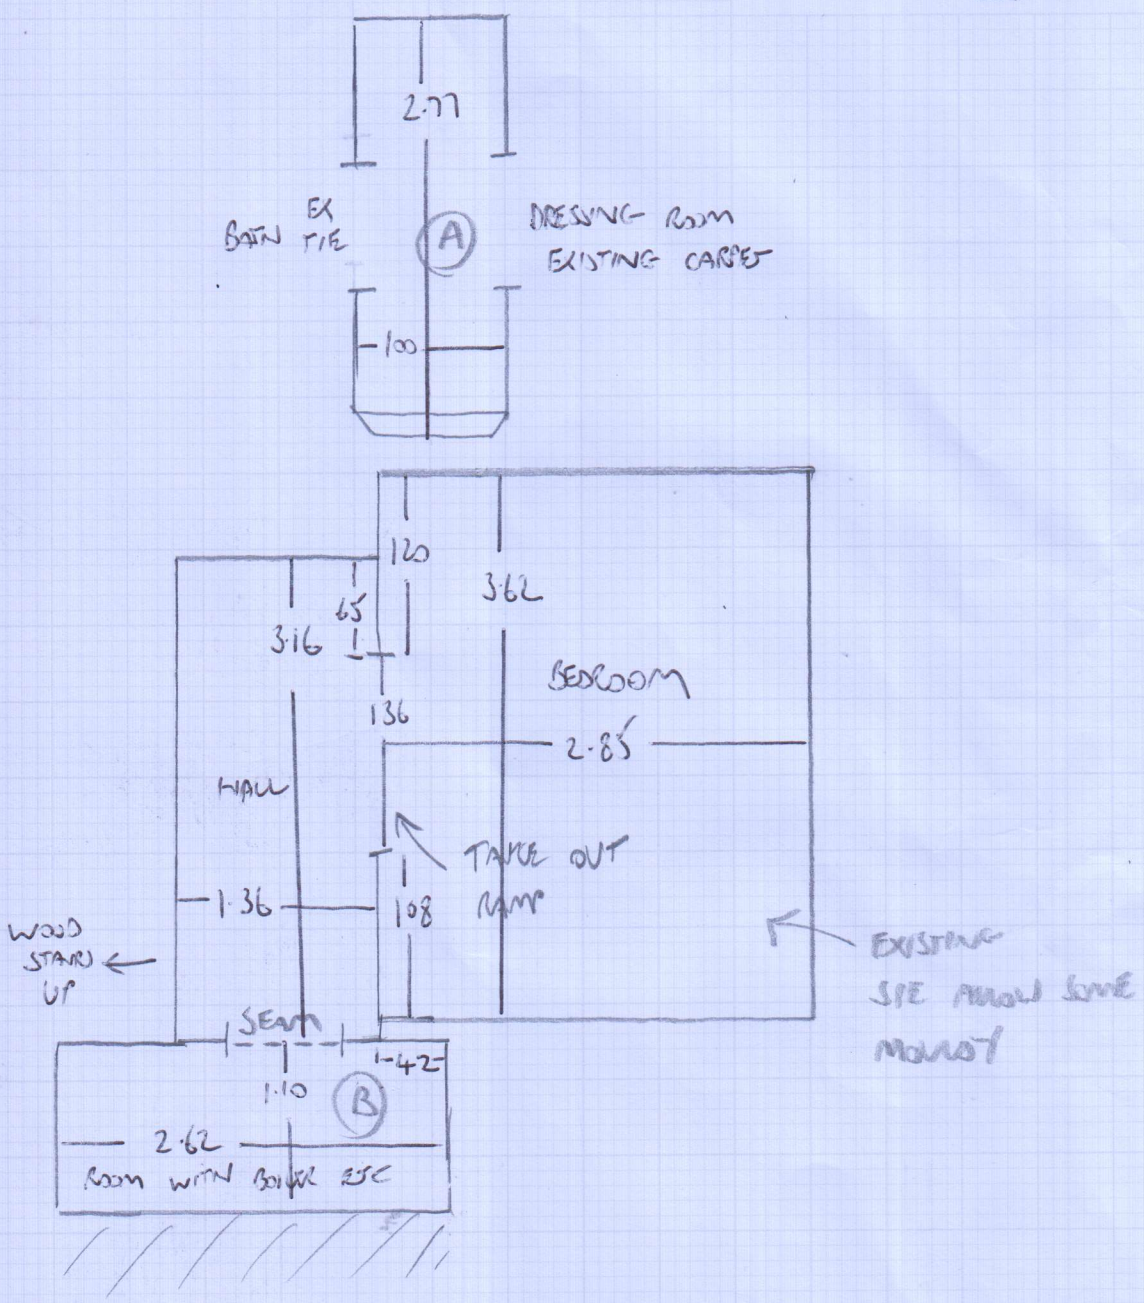 2.77
EX
BATH TILE
A
DRESSING ROOM
EXISTING CARPET
100
120
65
3.62
3.16
BEDROOM
136
2.85
HALL
TAKE OUT
RAMP
1.36
108
WOOD
STAIRS
UP
EXISTING
SOME
SEAM
42
1.10
B
2.62
ROOM WITH BOILER ETC